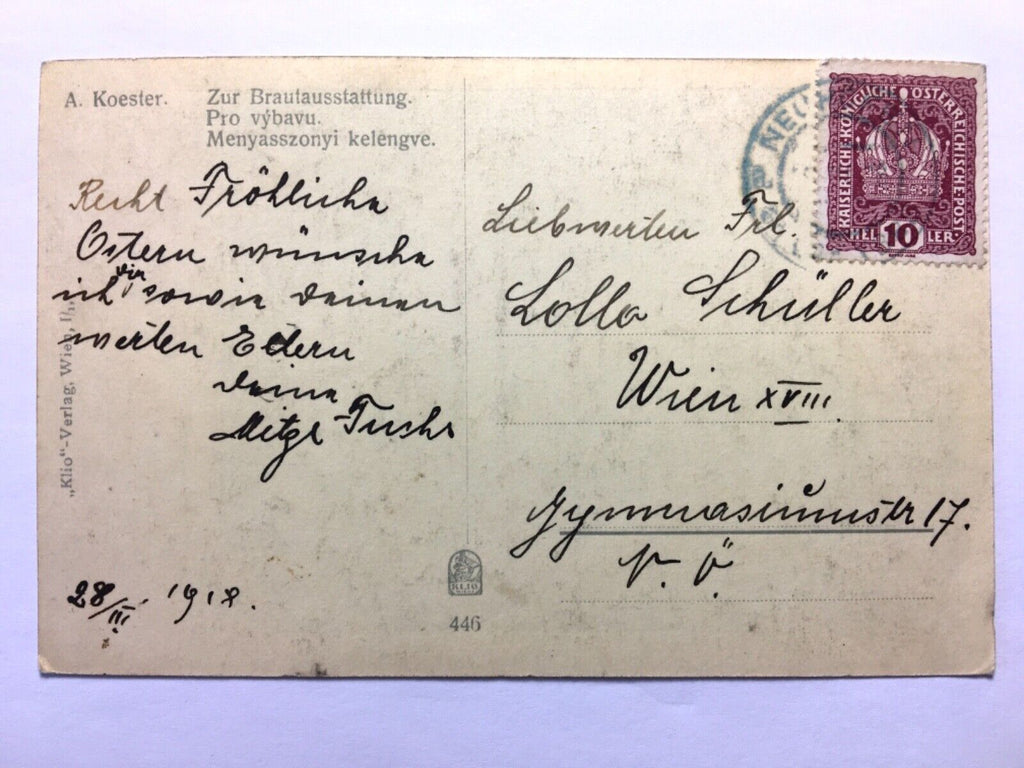 A. Koester.
Zur Brautausstattung.
Pro výbavu.
Menyasszonyi kelengye.
Recht Fröhliche
Ostern wünsche
ich dir sowie deinen
werten Eltern
deine
Mitzi Fuchs
28/III. 1918.
"Klio"-Verlag, Wien, I/1.
KLIO
446
KAISERLICHE KÖNIGLICHE ÖSTERREICHISCHE POST
10 HELLER
NEU
Liebwerten Frl.
Lolla Schüller
Wien XVIII.
Gymnasiumstr 17.
N. Ö